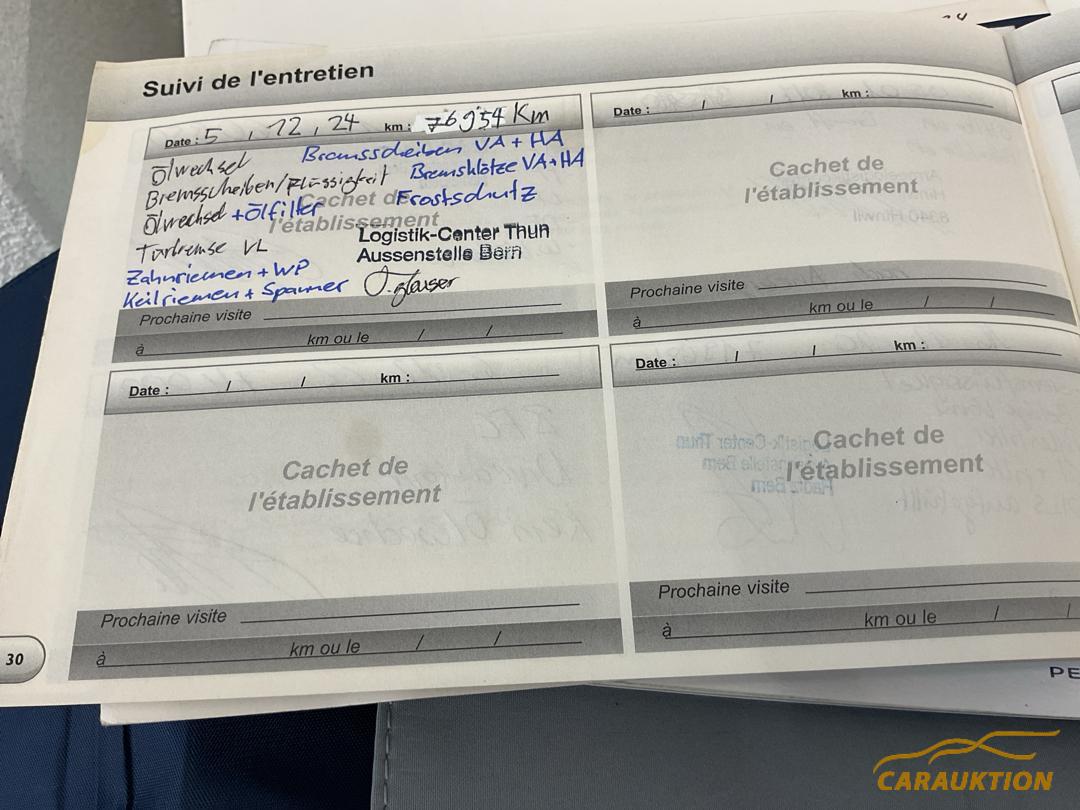 Suivi de l'entretien
Date : 5 , 12 , 24 km : 76954 Km
Ölwechsel Bremsscheiben VA + HA
Bremsscheiben/flüssigkeit Bremsklötze VA+HA
Ölwechsel + Ölfilter Frostschutz
Cachet de
l'établissement
VL
Logistik-Center Thun
Aussenstelle Bern
Zahnriemen + WP
Keilriemen + Spanner
Prochaine visite
à km ou le / /
Date : / / km :
Cachet de
l'établissement
Prochaine visite
à km ou le / /
Date : / / km :
Cachet de
l'établissement
Prochaine visite
à km ou le / /
Date : / / km :
Cachet de
l'établissement
Logistik-Center Thun
Aussenstelle Bern
Prochaine visite
à km ou le / /
30
PE
CARAUKTION